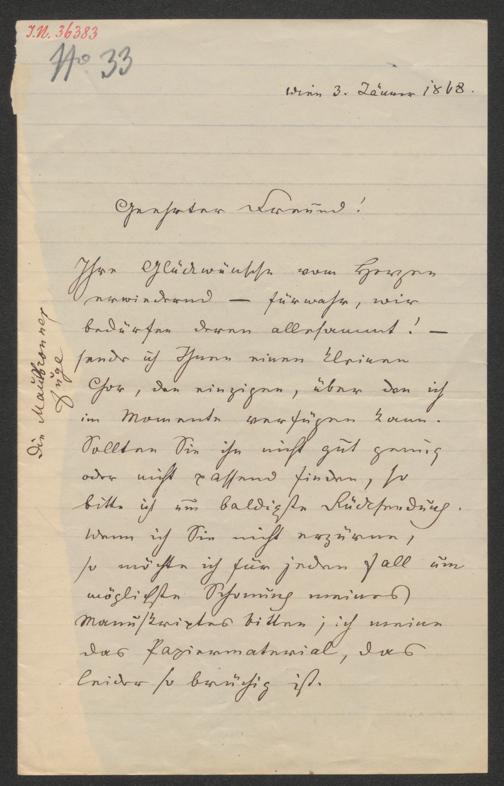 I.N. 36383
No 33
Wien 3. Jänner 1868.
Geehrter Freund!
Ihre Glückwünsche vom Herzen
erwiedernd — fürwahr, wir
bedürfen deren allesammt! —
sende ich Ihnen einen kleinen
Chor, den einzigen, über den ich
im Momente verfügen kann.
Sollten Sie ihn nicht gut genug
oder nicht passend finden, so
bitte ich um baldigste Rücksendung.
Wenn ich Sie nicht erzürne,
so möchte ich für jeden Fall um
möglichste Schonung meines
Manuskriptes bitten; ich meine
das Papiermaterial, das
leider so brüchig ist.
Die Maulbronner
Fuge